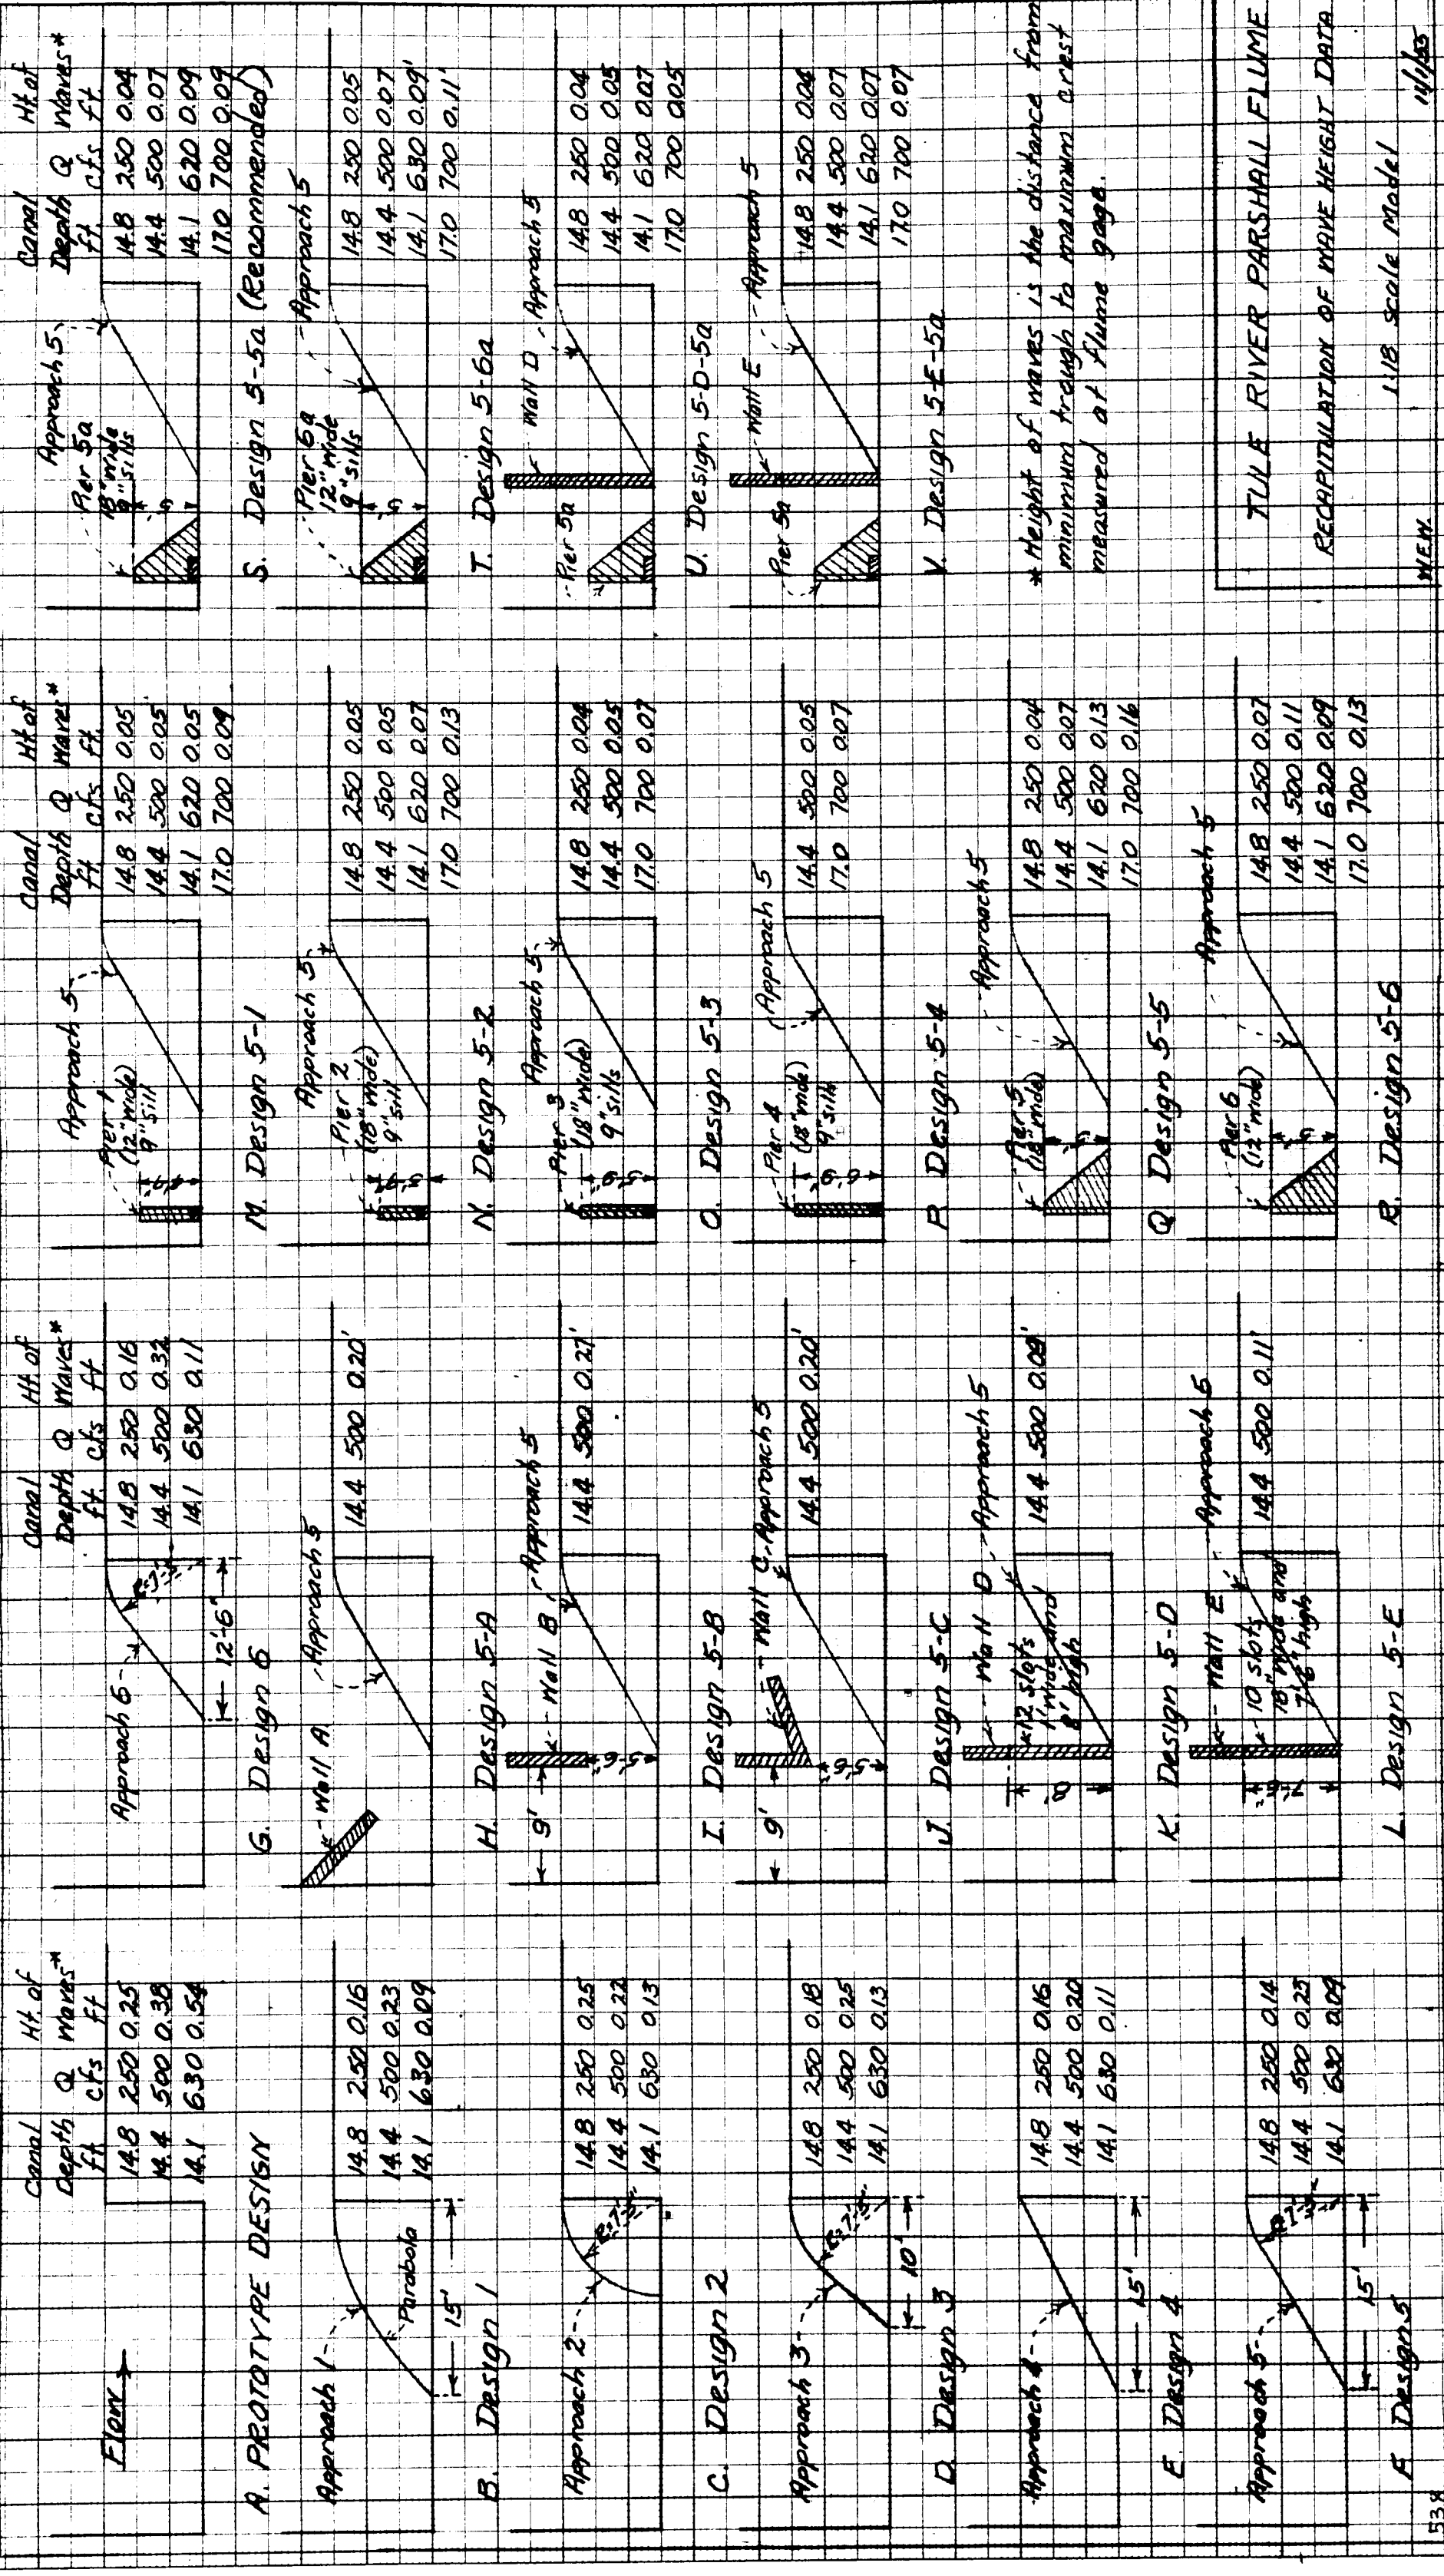 Canal Ht. of
Depth Q Waves*
ft cfs ft
Flow
14.8 250 0.25
14.4 500 0.38
14.1 630 0.54
A. PROTOTYPE DESIGN
Approach 1
Parabola
15'
14.8 250 0.16
14.4 500 0.23
14.1 630 0.09
B. Design 1
Approach 2
R=7'-5"
14.8 250 0.25
14.4 500 0.22
14.1 630 0.13
C. Design 2
Approach 3
R=7'-5"
10'
14.8 250 0.18
14.4 500 0.25
14.1 630 0.13
D. Design 3
Approach 4
15'
14.8 250 0.16
14.4 500 0.20
14.1 630 0.11
E. Design 4
Approach 5
R=7'-5"
15'
14.8 250 0.14
14.4 500 0.23
14.1 630 0.09
F. Design 5
538
Canal Ht of
Depth Q Waves*
ft. cfs ft
Approach 6
R=7'-5"
12'-6"
14.8 250 0.16
14.4 500 0.32
14.1 630 0.11
G. Design 6
Wall A
Approach 5
14.4 500 0.20'
H. Design 5-A
9'
Wall B
Approach 5
5'-6"
14.4 500 0.27'
I. Design 5-B
9'
Wall C
Approach 5
5'-6"
14.4 500 0.20'
J. Design 5-C
Wall D
Approach 5
12 slots
1' wide and
8' high
8'
14.4 500 0.09'
K. Design 5-D
Wall E
Approach 5
10 slots
18" wide and
7'-6" high
7'-6"
14.4 500 0.11'
L. Design 5-E
Canal Ht of
Depth Q Waves*
ft cfs ft.
Approach 5
Pier 1
(12" wide)
9" sill
14.8 250 0.05
14.4 500 0.05
14.1 620 0.05
17.0 700 0.09
M. Design 5-1
Approach 5
Pier 2
(18" wide)
9" sill
14.8 250 0.05
14.4 500 0.05
14.1 620 0.07
17.0 700 0.13
N. Design 5-2
Approach 5
Pier 3
(18" wide)
9" sills
5'-9"
14.8 250 0.04
14.4 500 0.05
17.0 700 0.07
O. Design 5-3
Approach 5
Pier 4
(18" wide)
9" sills
6'-9"
14.4 500 0.05
17.0 700 0.07
P. Design 5-4
Approach 5
Pier 5
(18" wide)
14.8 250 0.04
14.4 500 0.07
14.1 620 0.13
17.0 700 0.16
Q. Design 5-5
Approach 5
Pier 6
(12" wide)
14.8 250 0.07
14.4 500 0.11
14.1 620 0.09
17.0 700 0.13
R. Design 5-6
Canal Ht of
Depth Q Waves*
ft. cfs ft
Approach 5
Pier 5a
18" wide
9" sills
14.8 250 0.04
14.4 500 0.07
14.1 620 0.09
17.0 700 0.09
S. Design 5-5a (Recommended)
Approach 5
Pier 6a
12" wide
9" sills
14.8 250 0.05
14.4 500 0.07
14.1 630 0.09'
17.0 700 0.11'
T. Design 5-6a
Wall D
Approach 5
Pier 5a
14.8 250 0.04
14.4 500 0.05
14.1 620 0.07
17.0 700 0.05
U. Design 5-D-5a
Wall E
Approach 5
Pier 5a
14.8 250 0.04
14.4 500 0.07
14.1 620 0.07
17.0 700 0.07
V. Design 5-E-5a
* Height of waves is the distance from
minimum trough to maximum crest
measured at flume gage.
TULE RIVER PARSHALL FLUME
RECAPITULATION OF WAVE HEIGHT DATA
1:18 Scale Model
W.E.W.